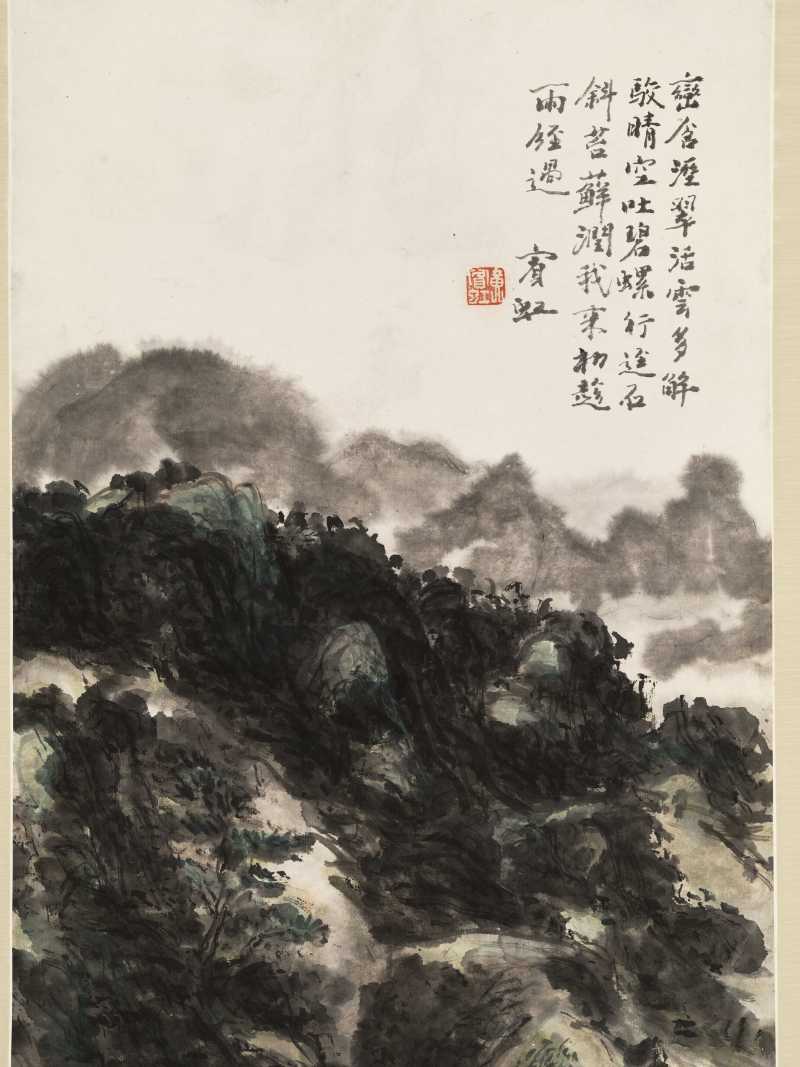 巒含溼翠活雲多解
駮晴空吐碧螺行逕石
斜苔蘚潤我來初趁
雨經過 賓虹
黃賓虹